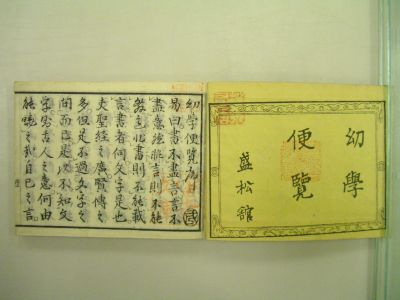 幼學
便覽
盛松舘
幼学便覧序
易曰書不盡言言不
盡意縱非言則不能
書則不能載
言書者何文字是也
夫聖經之廣賢傳之
多但是不過文字之
間而已是以不知文
字前古人之意何由
能曉之哉自己之言